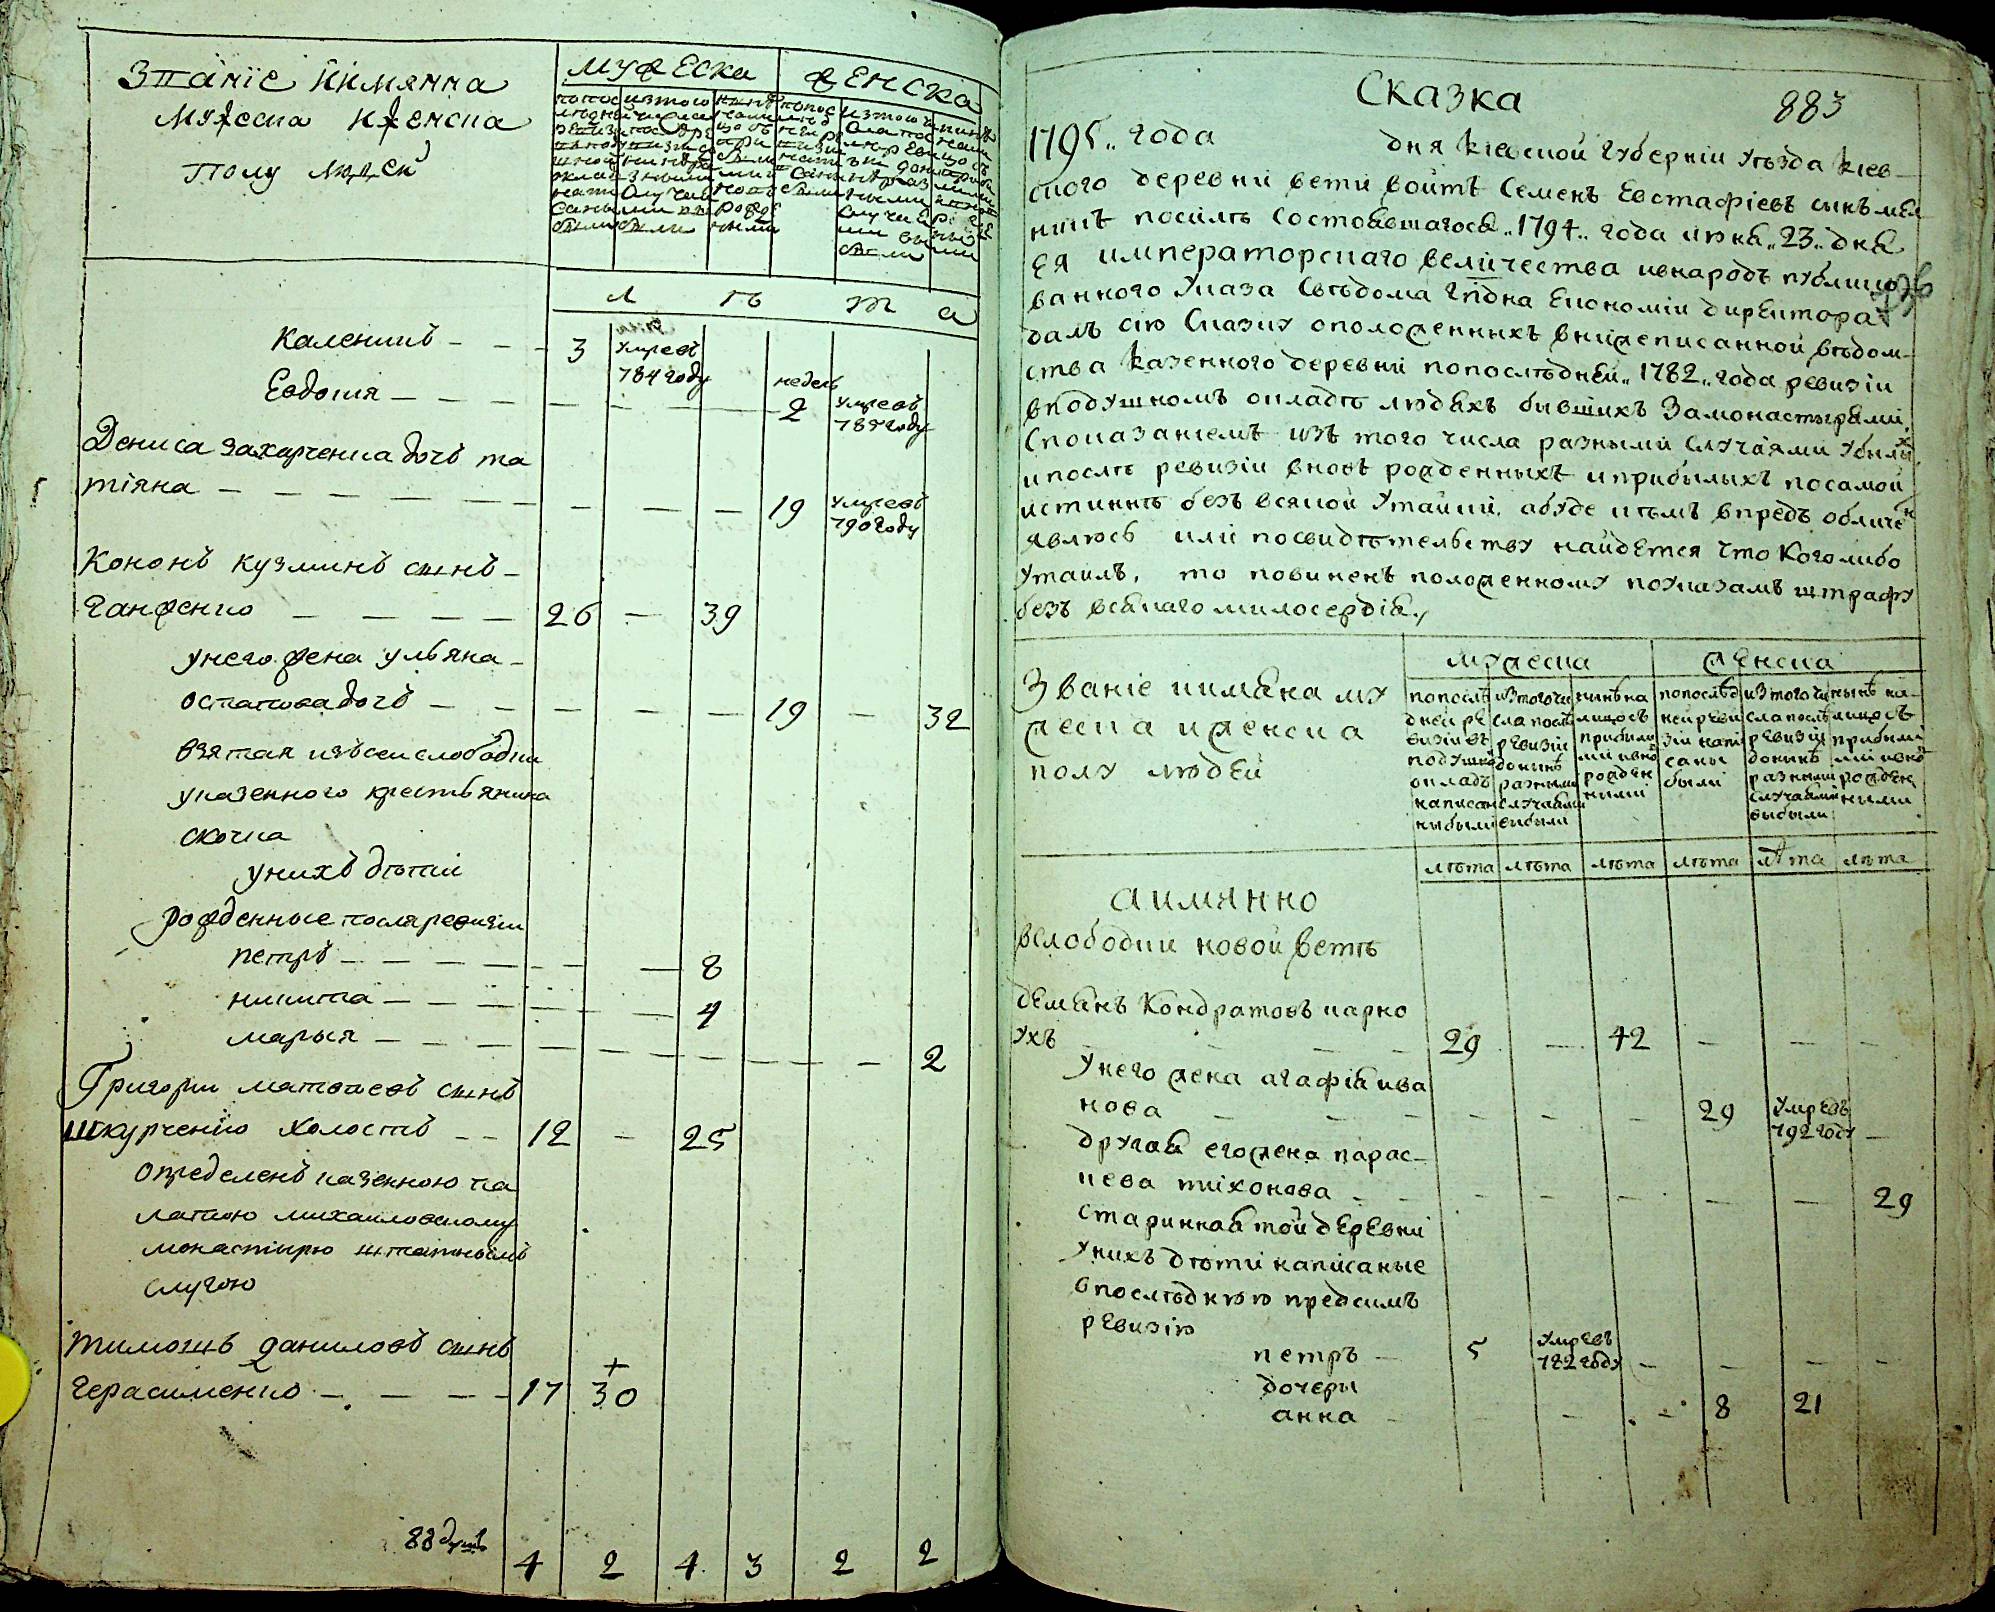 Званіе иимянна
Мужеска иженска
полу людей
мужеска
женска
л ѣ т а
каленикъ - - - 3 умревъ
784 году
Евдокия - - - - - - - - неделъ
2 умревъ
Дениса захарченка дочъ та
тіяна - - - - - - - - - 19 умревъ
790 году
Кононъ кузминъ синъ -
ганженко - - - - 26 - 39
унего жена ульяна -
остапова дочъ - - - - - - 19 - 32
взятая изъсеи слободки
указенного крестьянина
скочка
унихъ дѣтіи
рожденные посляревизіи
петръ - - - - - - - 8
никита - - - - - - - 4
марыя - - - - - - - - - - - 2
Григори матвѣевъ синъ
шкурченко холостъ - - 12 - 25
определенъ казенною па
латою михаиловскому
монастирю штатнымъ
слугою
тимошъ даниловъ синъ
герасименко - - - - 17 30
88 душъ
4 2 4 3 2 2
Сказка
883
1795.. года дня кіевской губерніи уѣзда кіев-
ского деревни вети войтъ Семенъ Евстафіевъ синъ мел
никъ посилѣ состоявшагося ..1794.. года июня ..23.. дня
ея императорскаго величества ивнародъ публико
ванного указа свѣдома гпдна Економіи директора
далъ сію сказку оположенныхъ внижеписанной вѣдом-
ства казенного деревни попослѣдней ..1782.. года ревизіи
вподушномъ окладѣ людяхъ бившихъ замонастырями,
споказаніемъ изъ того числа разными случаями убылы
ипослѣ ревизіи вновъ рожденныхъ иприбылыхъ посамой
истиннѣ безъ всякой утайки, абуде ктъмъ впредъ обличен
явлюсъ или посвидѣтельству найдется что коголибо
утаилъ, то повиненъ положенному поуказамъ штрафу
безъ всякаго милосердія.,
Званіе иимяна му
жеска иженска
полу людей
мужеска
женска
попослѣ
дней ре
визіи въ
подушно
окладъ
написан
ныбыли
изтогочи
сла послѣ
ревизіи
донинѣ
разными
случаями
выбыли
нинѣна
лицосъ
прибили
ми ивно
рожден
ними
попослѣд
ней реви
зіи напи
саны
были
изтогочи
сла послѣ
ревизіи
донинѣ
разними
случаями
выбыли
нынѣ на-
лицосъ
прибыли
ми ивно
рожден
ними
лѣта лѣта лѣта лѣта лѣта лѣта
аимянно
вслободки новой ветѣ
демянъ кондратовъ карно
ухъ - - - - 29 - 42 - - -
унего жена агафія ива
нова - - - - - - 29 умревъ
792 году -
другая егожена парас-
кева тихонова - - - - - - - 29
стариннаятой деревни
унихъ дѣти написаные
впослѣднюю предсимъ
ревизію
петръ - 5 умревъ
782 году - - - -
дочеры
анна - - - - - 8 21